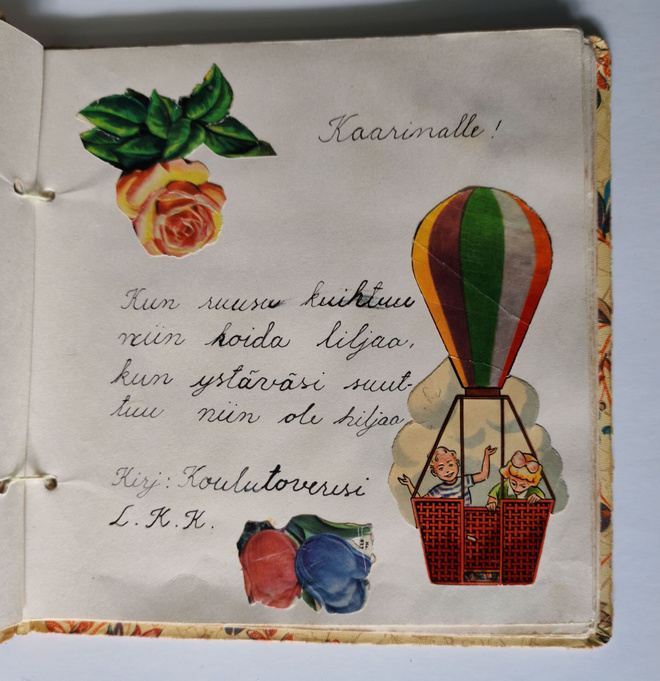 Kaarinalle!
Kun ruusu kuihtuu
niin hoida liljaa,
kun ystäväsi suut-
tuu niin ole hiljaa
Kirj: Koulutoverisi
L.K.K.